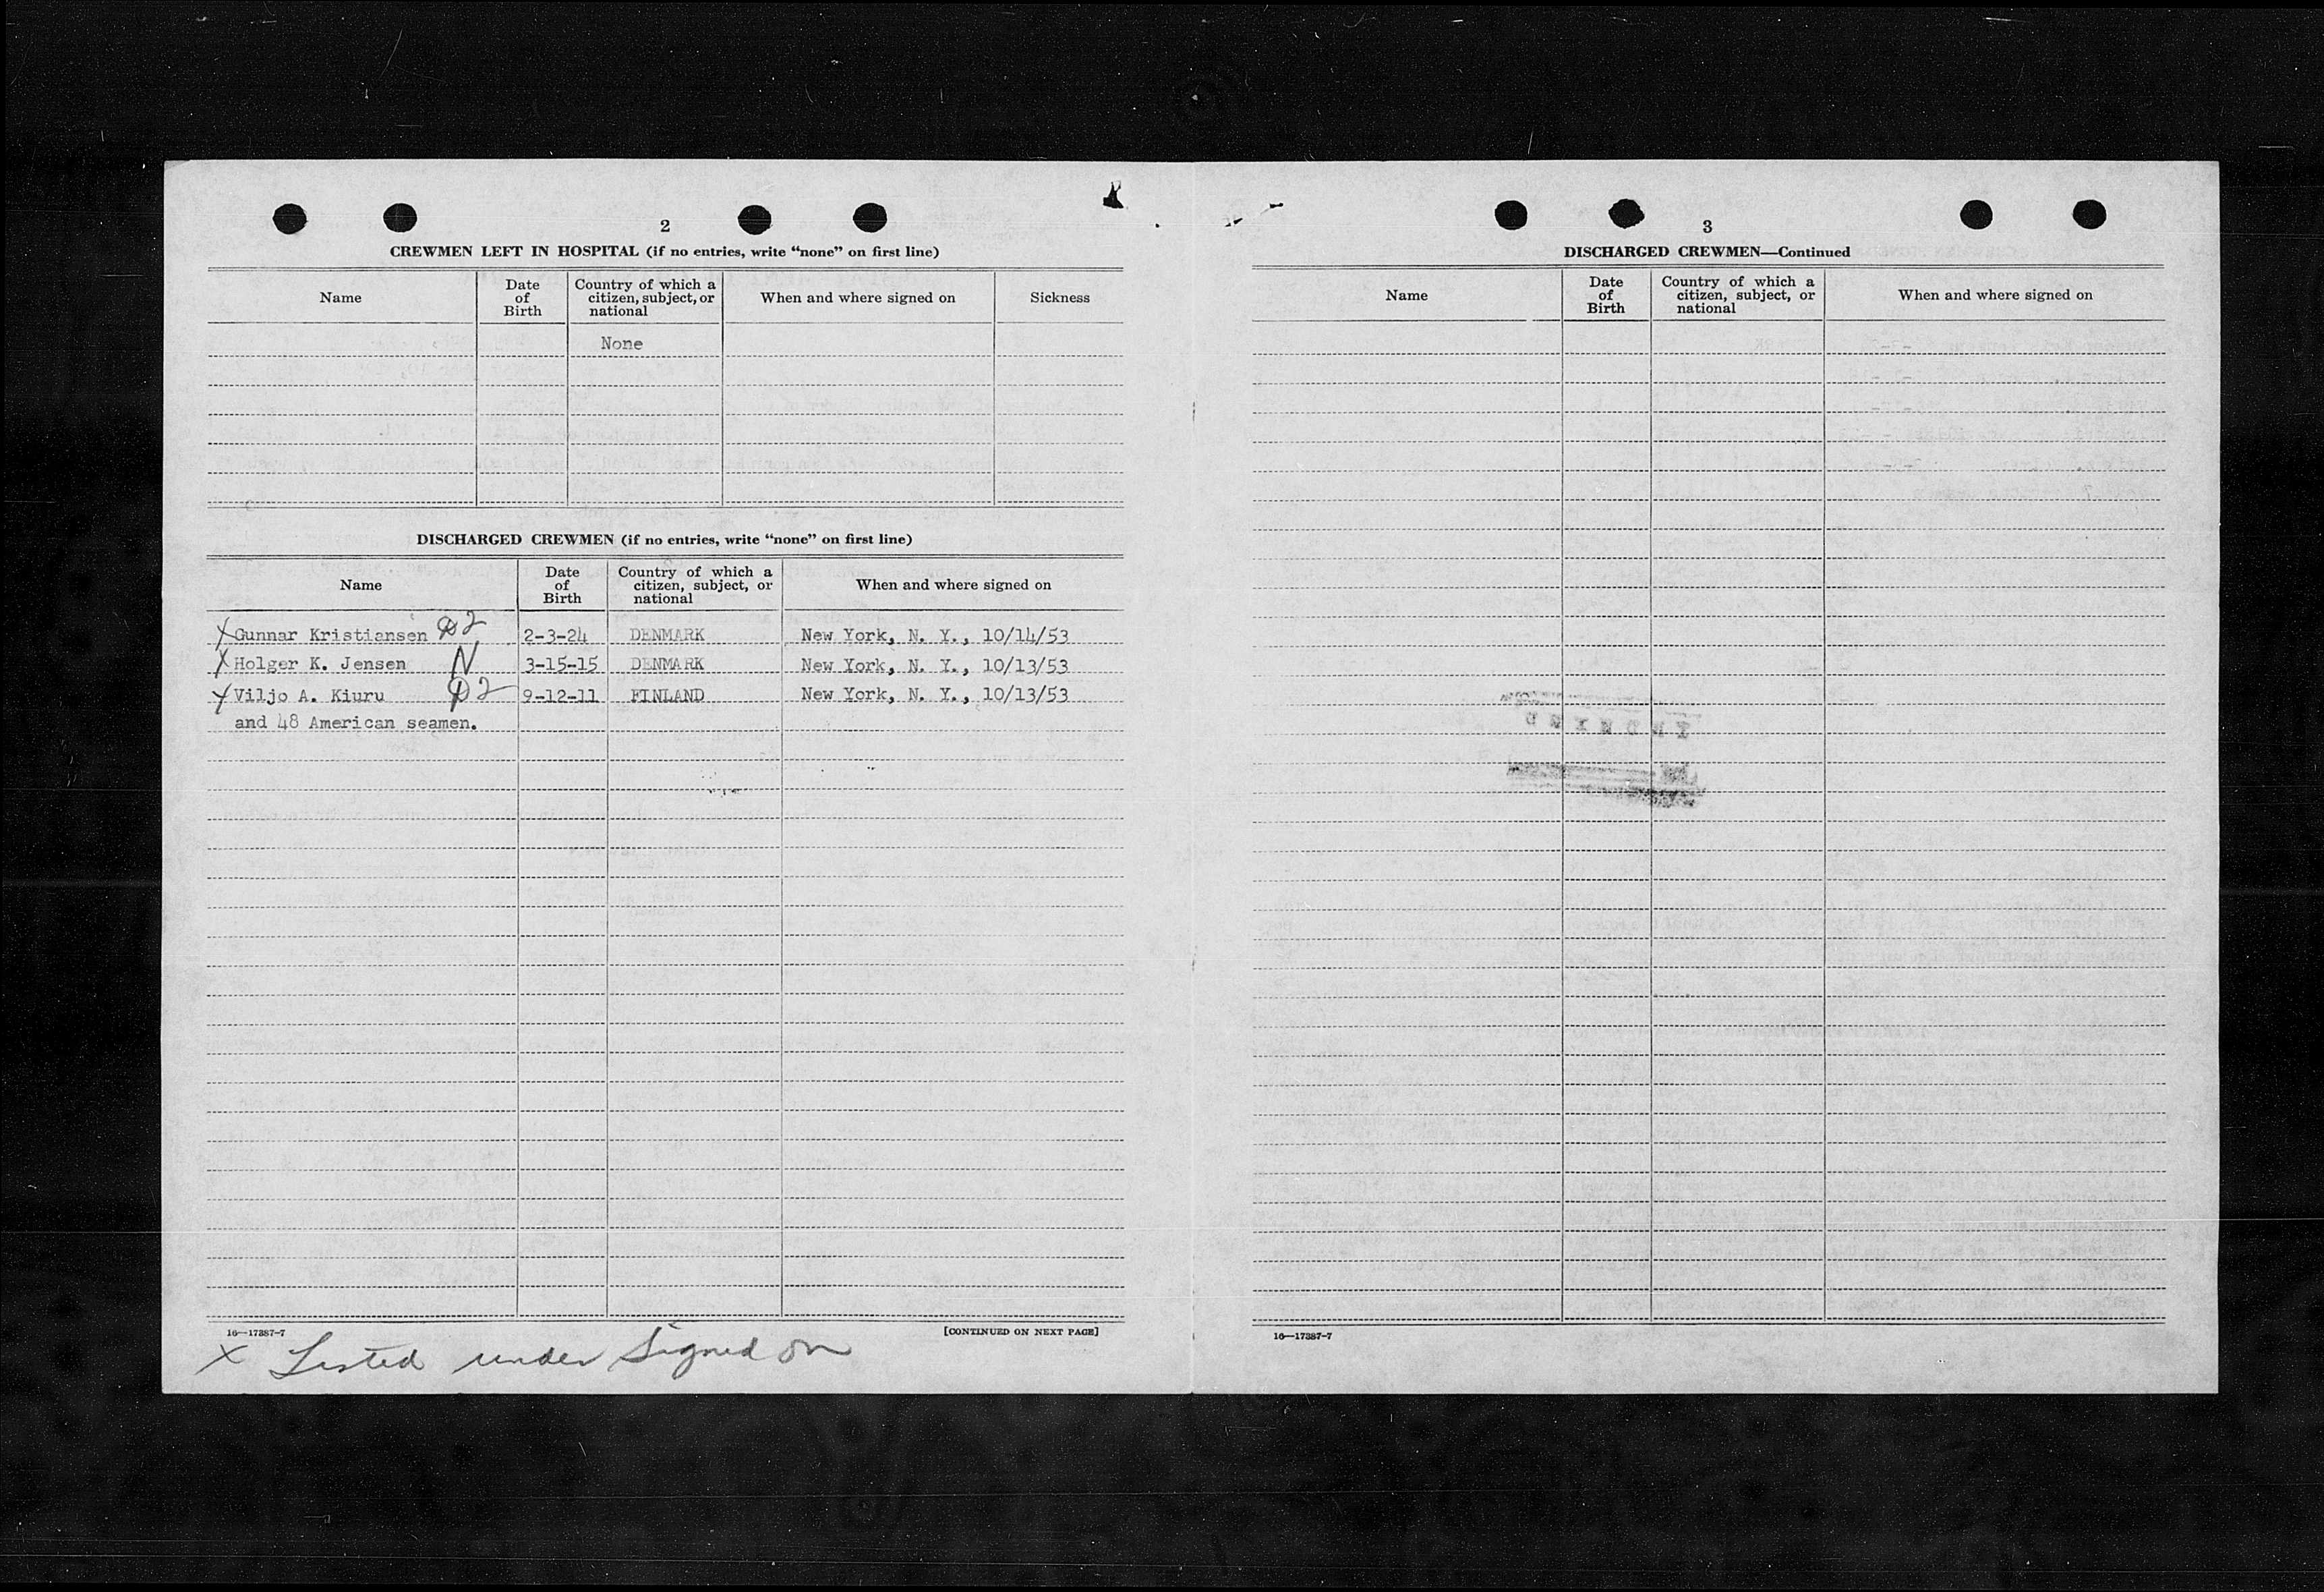 2
CREWMEN LEFT IN HOSPITAL (if no entries, write “none” on first line)
Name
Date of Birth
Country of which a citizen, subject, or national
When and where signed on
Sickness
None
DISCHARGED CREWMEN (if no entries, write “none” on first line)
Name
Date of Birth
Country of which a citizen, subject, or national
When and where signed on
X Gunnar Kristiansen D2 2-3-24 DENMARK New York, N. Y., 10/14/53
X Holger K. Jensen N 3-15-15 DENMARK New York, N. Y., 10/13/53
X Viljo A. Kiuru D2 9-12-11 FINLAND New York, N. Y., 10/13/53
and 48 American seamen.
16—17387-7
[CONTINUED ON NEXT PAGE]
X Listed under Signed on
3
DISCHARGED CREWMEN—Continued
Name
Date of Birth
Country of which a citizen, subject, or national
When and where signed on
16—17387-7